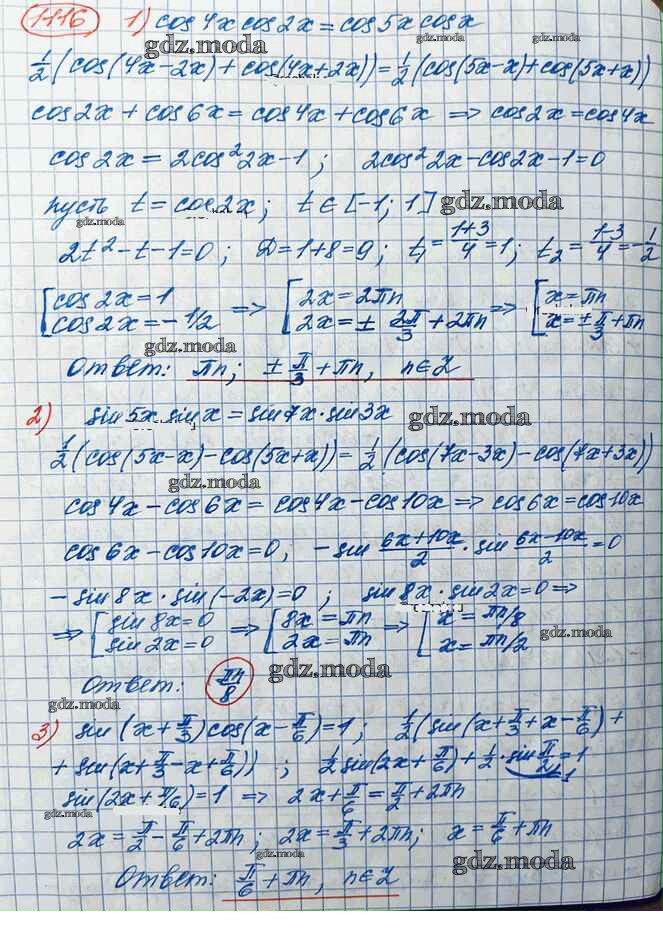 1116 1) cos4x cos2x = cos5x cosx
gdz.moda
½(cos(4x-2x) + cos(4x+2x)) = ½(cos(5x-x) + cos(5x+x))
gdz.moda
cos2x + cos6x = cos4x + cos6x => cos2x = cos4x
gdz.moda
cos2x = 2cos²2x-1; 2cos²2x-cos2x-1=0
пусть t = cos2x; t∈[-1; 1] gdz.moda
gdz.moda
2t²-t-1=0; D=1+8=9; t₁ = (1+3)/4 = 1; t₂ = (1-3)/4 = -1/2
gdz.moda
[cos2x = 1 => [2x = 2πn => [x = πn
cos2x = -1/2 2x = ± 2π/3 + 2πn x = ± π/3 + πn
gdz.moda
Ответ: πn; ± π/3 + πn, n∈Z
2) sin5x sinx = sin7x · sin3x
gdz.moda
½(cos(5x-x) - cos(5x+x)) = ½(cos(7x-3x) - cos(7x+3x))
gdz.moda
cos4x - cos6x = cos4x - cos10x => cos6x = cos10x
cos6x - cos10x = 0; -sin (6x+10x)/2 · sin (6x-10x)/2 = 0
-sin8x · sin(-2x) = 0; sin8x · sin2x = 0 =>
=> [sin8x = 0 => [8x = πn => [x = πn/8
sin2x = 0 2x = πn x = πn/2
gdz.moda
Ответ: πn/8
gdz.moda
gdz.moda
3) sin(x + π/3)cos(x - π/6) = 1; ½(sin(x + π/3 + x - π/6) +
+ sin(x + π/3 - x + π/6)); ½sin(2x + π/6) + ½·sin π/2 = 1
gdz.moda
1
sin(2x + π/6) = 1 => 2x + π/6 = π/2 + 2πn
gdz.moda
2x = π/2 - π/6 + 2πn; 2x = π/3 + 2πn; x = π/6 + πn
gdz.moda
Ответ: π/6 + πn, n∈Z
gdz.moda